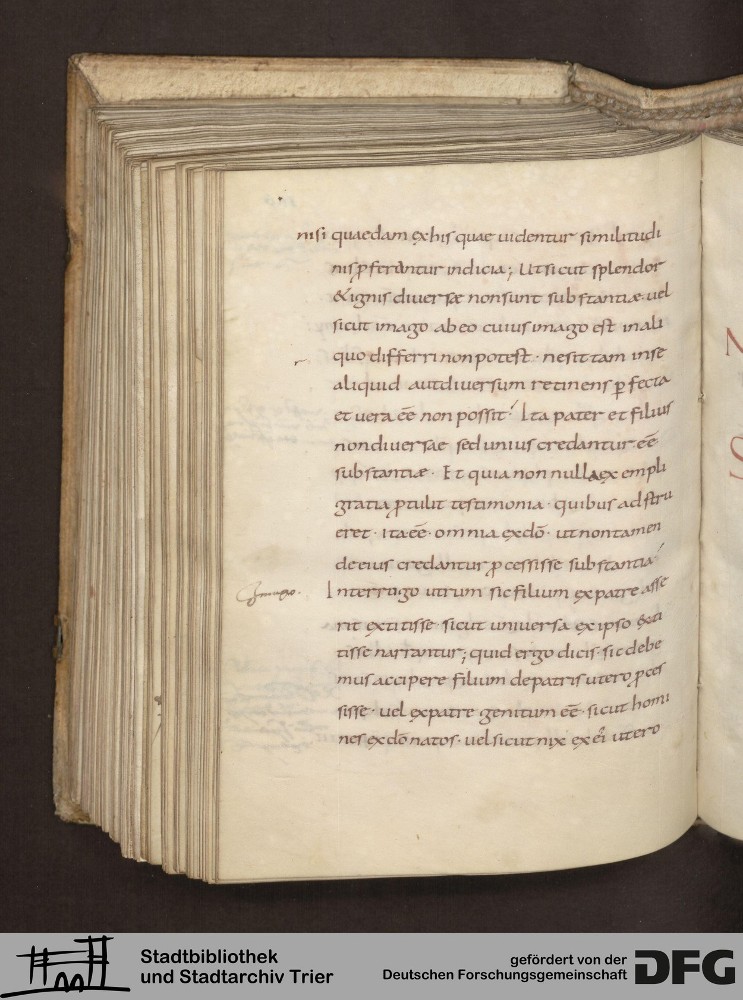 nisi quaedam ex his quae uidentur similitudi
nis pferantur indicia; Ut sicut splendor
& ignis diuersae non sunt substantiae uel
sicut imago ab eo cuius imago est in ali
quo differri non potest · ne sit tam in se
aliquid aut diuersum retinens pfecta
et uera ee non possit Ita pater et filius
non diuersae sed unius credantur ee
substantiae · Et quia non nulla exempli
gratia ptulit testimonia · quibus adstru
eret · ita ee · omnia ex do · ut non tamen
de eius credantur pcessisse substantia
Imago.
Interrogo utrum sic filium ex patre asse
rit extitisse · sicut uniuersa ex ipso exti
tisse narrantur; quid ergo dicis · sic debe
mus accipere filium de patris utero pces
sisse · uel ex patre genitum ee · sicut homi
nes ex do natos · uel sicut nix ex ei utero
N
S
Stadtbibliothek
und Stadtarchiv Trier
gefördert von der
Deutschen Forschungsgemeinschaft
DFG